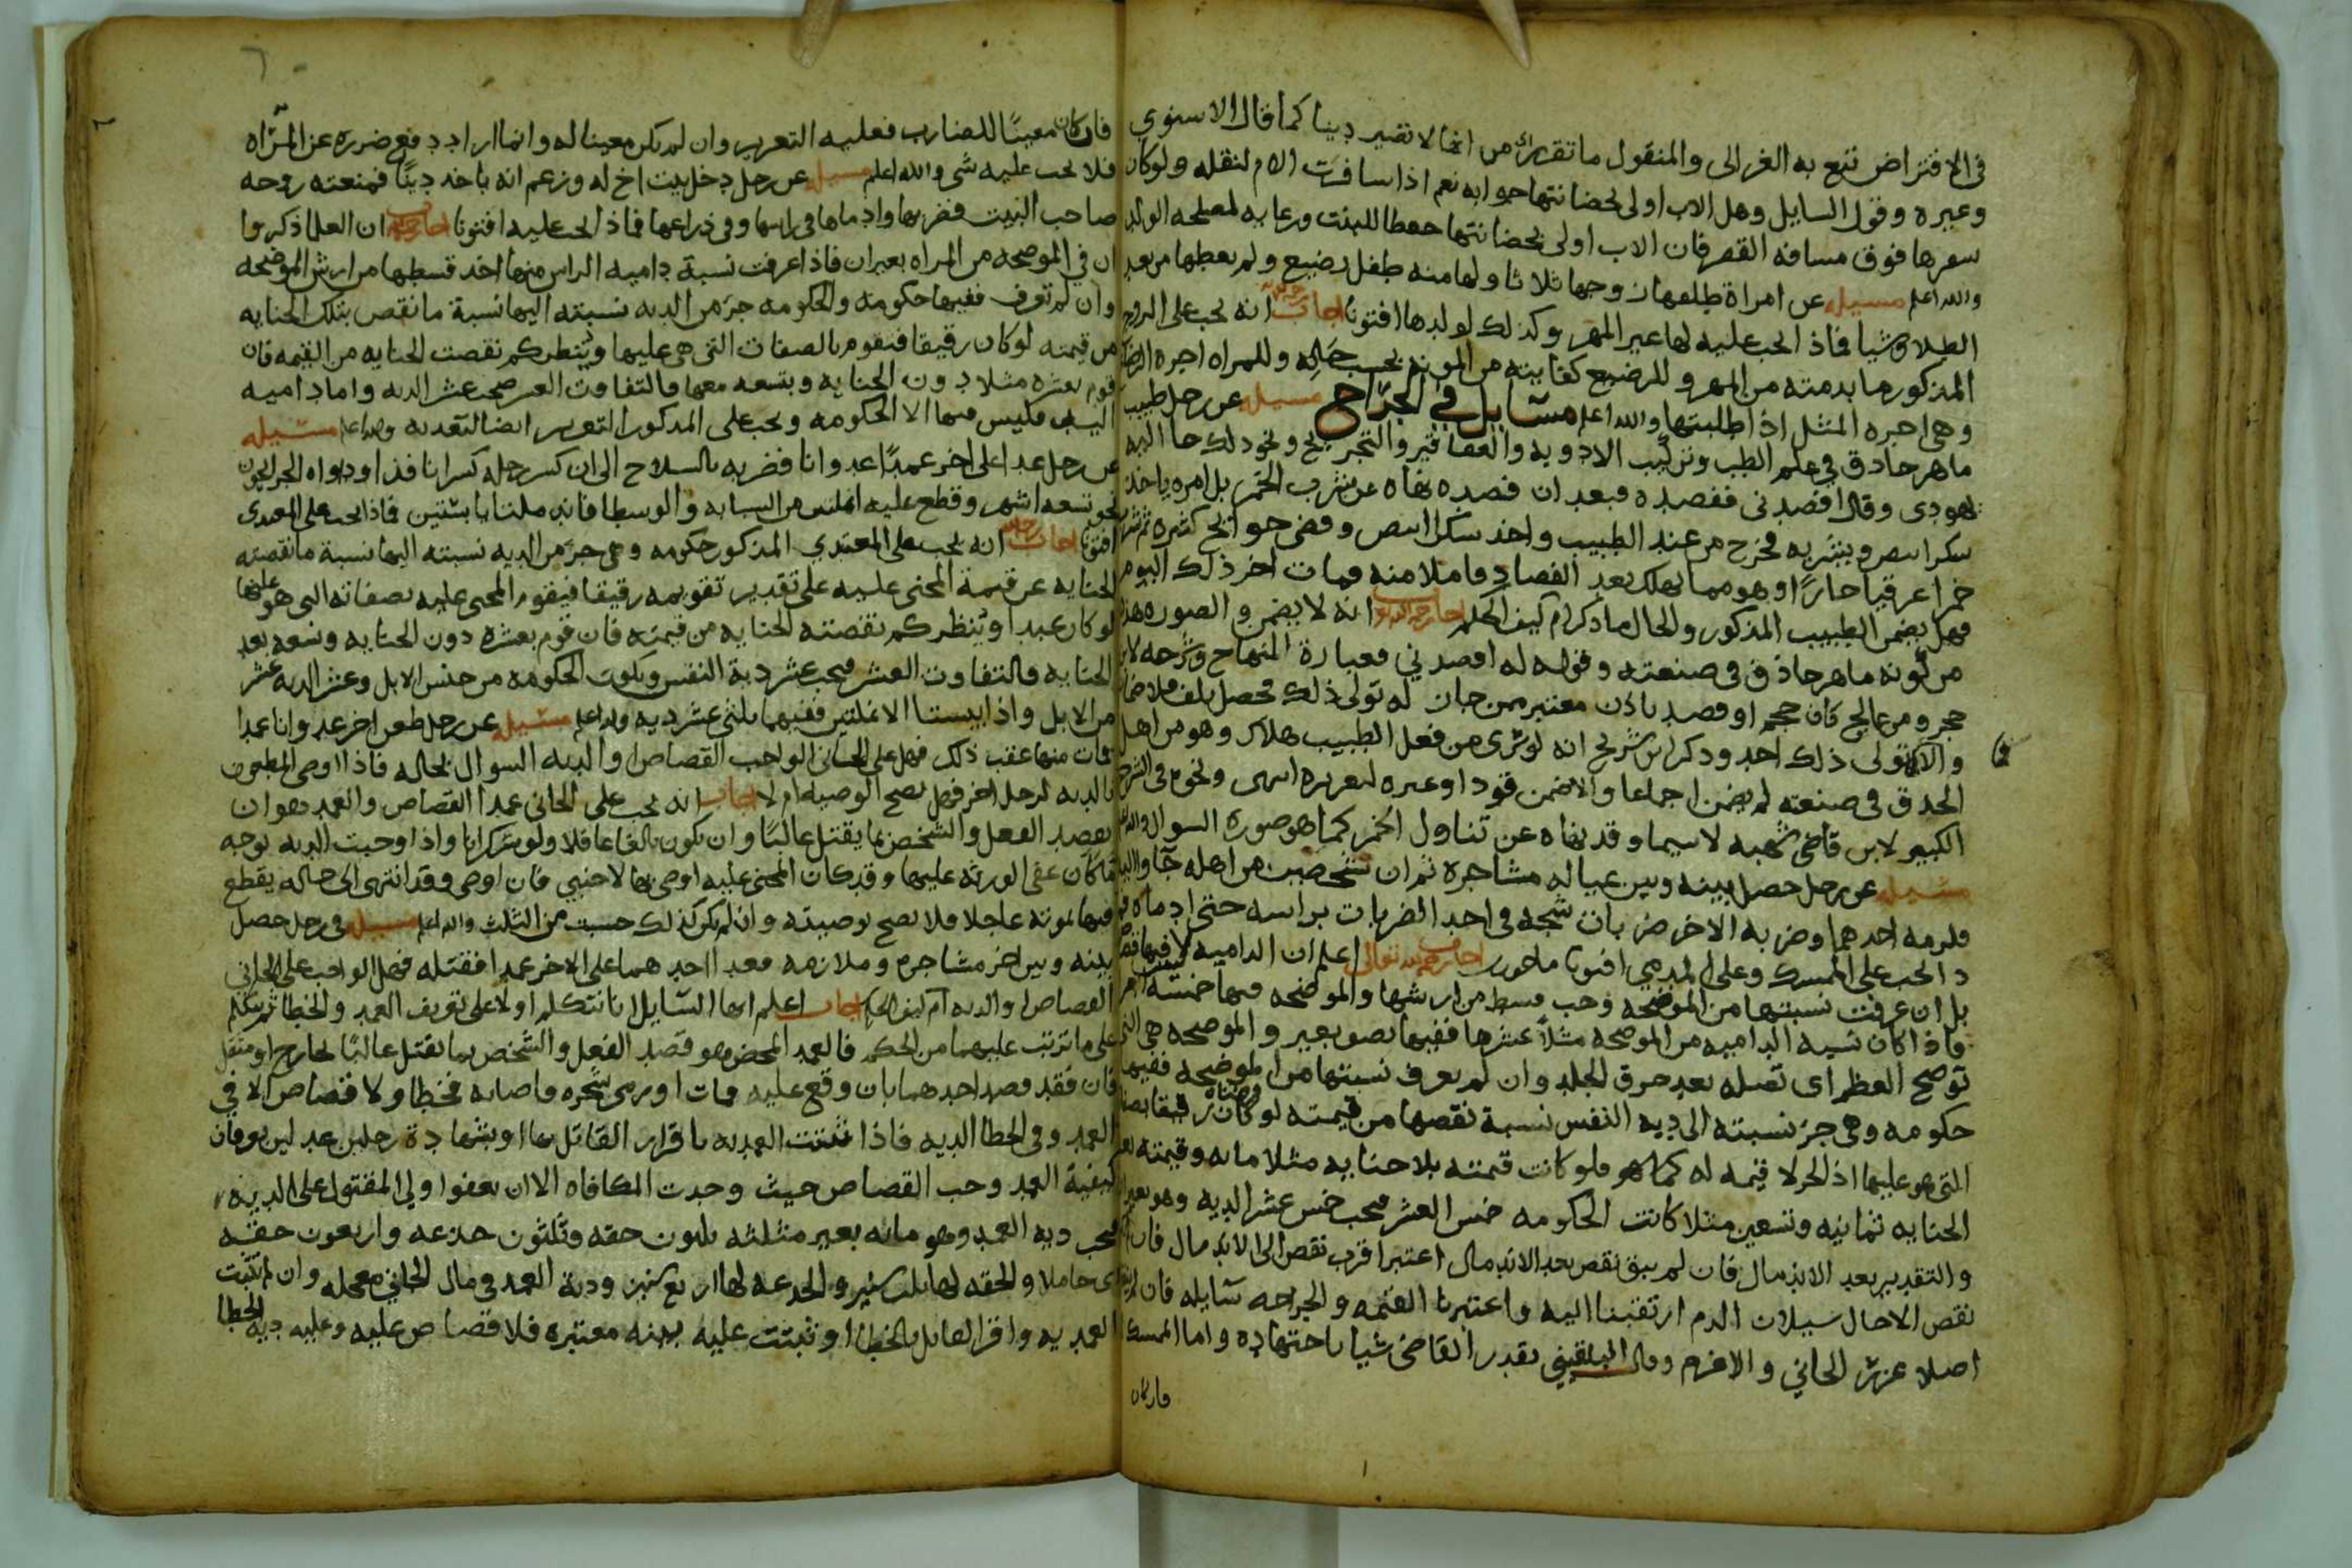 في الافتراض تتبع به الغزالى والمنقول ما تقرر من انها لا تصير دينا كما قال الاسنوي
وغيره وقول السايل وهل الاب اولى بحضانتها جوابه نعم اذا سافرت الام لنقله ولو كان
سفرها فوق مسافه القصر فان الاب اولى بحضانتها حفظا للبنت ورعايه لمصلحه الولد
والله اعلم مسيله عن امراة طلقها زوجها ثلاثا ولها منه طفل رضيع ولم يعطها من بعد
الطلاق شيا فماذا يجب عليه لها غير المهر وكذلك لولدها افتونا اجاب انه يجب على الزوج
المذكور ما بذمته من المهر و للرضيع كفايته من المونه بحسب حاله وللمراه اجره الرضاع
وهي اجره المثل اذا طلبتها والله اعلم مسايل في الجراح مسيله عن رجل طبيب
ماهر حاذق في علم الطب وتركيب الادويه والعقاقير والتجريح ونحو ذلك جا اليه
يهودى وقال افصدنى ففصده فبعد ان فصده نهاه عن شرب الخمر بل امره ياخذ
سكرا ابيض ويشربه فخرج من عند الطبيب واخذ سكرا ابيض وقضى حوايج كثيره ثم شرب
خمرا عرقيا حارًا وهو مما يهلك بعد الفصاد وامتلا منه فمات اخر ذلك اليوم
فهل يضمن الطبيب المذكور والحال ما ذكر ام كيف الحكم اجاب انه لا يضمن والصوره هذه
من كونه ماهر حاذق فى صنعته وقوله له افصدني فعبارة المنهاج وشرحه لابن
حجر ومن عالج كان حجم او فصد باذن معتبر ممن جاز له تولى ذلك فحصل تلف فلا ضمان
والا تولى ذلك احد وذكر ابن سريج انه لو سرى من فعل الطبيب هلاك وهو من اهل
الحذق في صنعته لم يضمن اجماعا والا ضمن قودا وغيره لتغريره انتهى ونحوه في الشرح
الكبير لابن قاضى شهبه لاسيما وقد نهاه عن تناول الخمر كما هو صورة السوال والله
مسيله عن رجل حصل بينه وبين عياله مشاجرة ثم ان شخصين من اهله جا واليه
فلزمه احدهما وضربه الاخر ضربات شجه في احد الضربات براسه حتى ادماه
ذا يجب على الممسك وعلى المدمي افتونا ماجورين اجاب رحمه الله تعالى اعلم ان الداميه لا
بل ان عرفت نسبتها من الموضحه وجب قسط من ارشها والموضحه فيها خمسة
فاذا كان نسبه الداميه من الموضحه مثلاً عشرها ففيها نصف بعير والموضحه هي التي
توضح العظم اى تصله بعد خرق الجلد وان لم يعرف نسبتها من الموضحه ففيها
حكومه وهي جز نسبته الى ديه النفس نسبة نقصها من قيمته لو كان رقيقا بصفاته
التى هو عليها اذ الحر لا قيمه له كما هو فلو كانت قيمته بلا جنايه مثلا مايه وقيمته بعد
الجنايه ثمانيه وتسعين مثلا كانت الحكومه خمس العشر فيجب خمس عشر الديه وهو بعيران
والتقدير بعد الاندمال فان لم يبق نقص بعد الاندمال اعتبر اقرب نقص الى الاندمال فان
نقص الا حال سيلان الدم ارتقبنا اليه واعتبرنا القيمه والجراحه سايله فان
اصلا عزر الجاني والاغرم وقال البلقيني يقدر القاضى شيا باجتهاده واما الممسك
فان كان
فان كان معينًا للضارب فعليه التعزير وان لم يكن معينا له وانما اراد دفع ضرره عن المراه
فلا يجب عليه شى والله اعلم مسيله عن رجل دخل بيت اخ له وزعم انه ياخذ دينًا فمنعته زوجه
صاحب البيت فضربها وادماها في راسها وفي ذراعها فماذا يجب عليه افتونا اجاب ان العلما ذكروا
ان في الموضحه من المراه بعيران فاذا عرفت نسبة داميه الراس منها اخذ قسطها من ارش الموضحه
وان لم تعرف ففيها حكومه والحكومه جز من الديه نسبته اليها نسبة ما نقص بتلك الجنايه
من قيمته لو كان رقيقا فتقوم بالصفات التى هي عليها وينظر كم نقصت الجنايه من القيمه فان
قوم بعشره مثلا دون الجنايه وبتسعه معها فالتفاوت العشر فيجب عشر الديه واما داميه
اليد فليس فيها الا الحكومه ويجب على المذكور التعزير ايضا لتعديه والله اعلم مسيله
عن رجل عدا على اخر عمدًا عدوانا فضربه بالسلاح الى ان كسر رجله كسرا نافذا وداواه الجرايحي
نحو تسعه اشهر وقطع عليه انملتين من السبابه والوسطا فانملتا يابستين فماذا يجب على المعتدى
افتونا اجاب انه يجب على المعتدي المذكور حكومه وهي جز من الديه نسبته اليها نسبة ما نقصته
الجنايه عن قيمة المجنى عليه على تقدير تقويمه رقيقا فيقوم المجنى عليه بصفاته التى هو عليها
لو كان عبدا وينظر كم نقصته الجنايه من قيمته فان قوم بعشره دون الجنايه وتسعه بعد
الجنايه فالتفاوت العشر فيجب عشر دية النفس وتكون الحكومه من جنس الابل وعشر الديه عشر
من الابل واذا يبستا الانملتين ففيهما ثلثى عشر ديه والله اعلم مسيله عن رجل طعن اخر عدوانا عمدا
فمات منها عقب ذلك فهل على الجانى الواجب القصاص او الديه السوال بحاله فاذا اوصى المطعون
بالديه لرجل اخر فهل تصح الوصيه ام لا اجاب انه يجب على الجانى عمدا القصاص والعمد هو ان
يقصد الفعل والشخص بما يقتل غالبًا وان يكون بالغا عاقلا ولو سكرانا واذا وجبت الديه بوجه
ما كان عفى الورثه عليها وقد كان المجنى عليه اوصى بها لاجنبي فان اوصى وقد انتهى الى حاله يقطع
فيها بموته عاجلا فلا تصح وصيته وان لم يكن كذلك حسبت من الثلث والله اعلم مسيله في رجل حصل
بينه وبين اخر مشاجره وملازمه فعدا احدهما على الاخر عمدا فقتله فهل الواجب على الجانى
القصاص او الديه ام كيف الحكم اجاب اعلم ايها السايل انا نتكلم اولا على تعريف العمد والخطا ثم نتكلم
على ما ترتب عليهما من الحكم فالعمد المحض وهو قصد الفعل والشخص بما يقتل غالبًا لجارح او مثقل
فان فقد قصد احدهما بان وقع عليه فمات او رمى شجره فاصابه فخطا ولا قصاص الا في
العمد وفي الخطا الديه فاذا ثبتت العمديه باقرار القاتل بها او بشهادة رجلين عدلين يعرفان
كيفية العمد وجب القصاص حيث وجدت المكافاه الا ان يعفوا ولي المقتول على الديه
فيجب ديه العمد وهو مايه بعير مثلثه ثلثون حقه وثلثون جذعه واربعون خلفه
اى حاملا والحقه لها ثلاث سنين والجذعه لها اربع سنين ودية العمد فى مال الجاني معجله وان لم تثبت
العمديه واقر القاتل بالخطا او ثبتت عليه بينه معتبره فلا قصاص عليه وعليه ديه الخطا